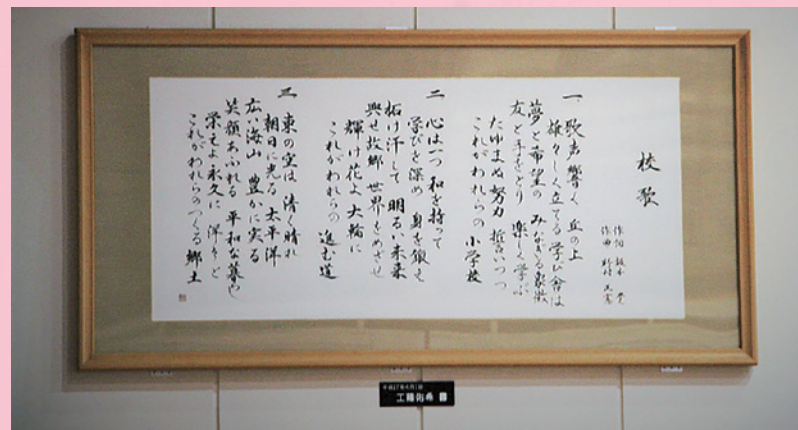 校歌
作詞
作曲 野村
一 歌声響く 丘の上
雄々しく立てる 学び舎は
夢と希望の みなぎる象徴
友と手をとり 楽しく学ぶ
たゆまぬ努力 誓いつつ
これがわれらの 小学校
二 心は一つ 和を持って
学びを深め 身を鍛え
拓け汗して 明るい未来
興せ故郷 世界をめざせ
輝け花よ 大輪に
これがわれらの 進む道
三 東の空は 清く晴れ
朝日に光る 太平洋
広い海山 豊かに実る
笑顔あふれる 平和な暮し
栄えよ永久に 洋々と
これがわれらのつくる 郷土
平成27年4月1日
工藤